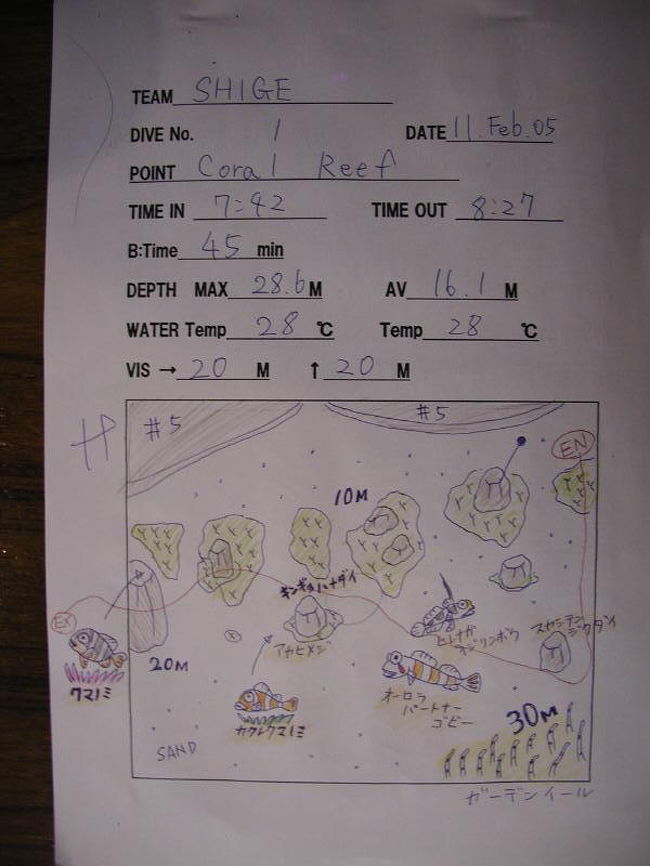 TEAM SHIGE
DIVE No. 1 DATE 11.Feb.05
POINT Coral Reef
TIME IN 7:42 TIME OUT 8:27
B:Time 45 min
DEPTH MAX 28.6 M AV 16.1 M
WATER Temp 28 ℃ Temp 28 ℃
VIS → 20 M ↑ 20 M
#5 #5
EN
10M
キンギョハナダイ
EX
アヤヒメジ
20M
クマノミ
カクレクマノミ
オーロラ
パートナー
ゴビー
30M
SAND
ガーデンイール